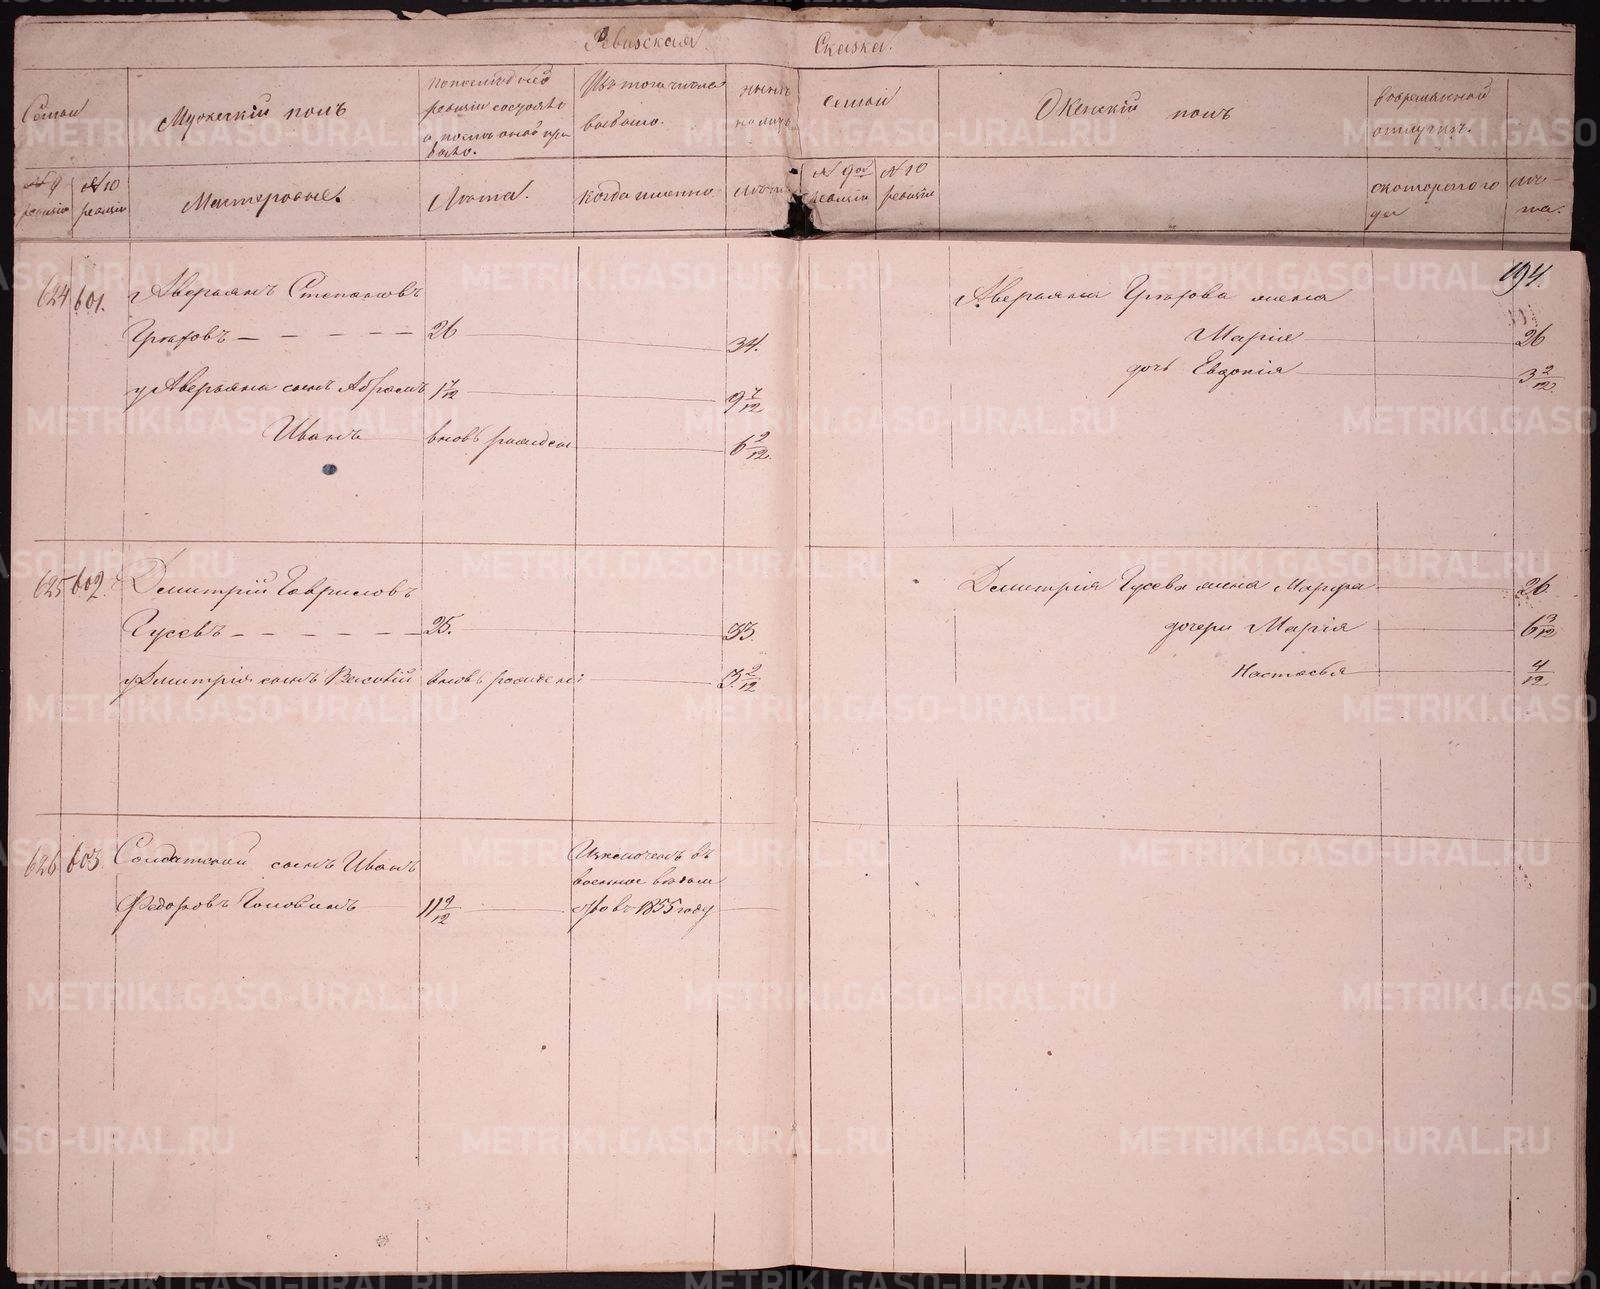 Ревизская Сказка.
Семьи
Мужескій полъ
По последней
ревизіи состояло
и после оной при
было.
Изъ того числа
выбыло.
ныне
на лицо
Семьи
Женскій полъ
Во временной
отлучке.
№ 9
ревизіи
№ 10
ревизіи
Мастеровые.
Лета.
Когда именно
Лета
№ 9ой
ревизіи
№ 10
ревизіи
съ котораго го
да
Ле-
та.
194.
624 601. Аверьянъ Степановъ
26 34.
у Аверьяна сынъ Абрамъ 1 7/12 9 7/12
Иванъ вновь рожден 6 2/12.
Аверьяна жена
Марія 26
дочь Евдокія 3 2/12.
625 602. Дмитрій Гавриловъ
Гусевъ 25. 33.
у Дмитрія сынъ Василій вновь рожденъ 3 2/12
Дмитрія Гусева жена Марфа 26
дочери Марія 6 3/12
Настасья 4/12
626 603. Солдатскій сынъ Иванъ
Федоровъ Головинъ 11 9/12
Изключенъ въ
военное ведом
ство въ 1855 году
METRIKI.GASO-URAL.RU